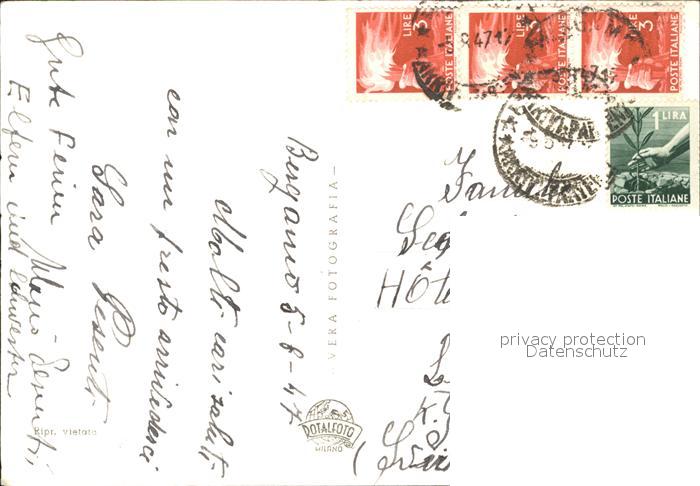 3 LIRE
POSTE ITALIANE
3 LIRE
POSTE ITALIANE
3 LIRE
POSTE ITALIANE
1 LIRA
POSTE ITALIANE
Bergamo 5-8-47
Molti cari saluti
con un presto arrivederci
Sara Pesenti
Gute Ferien Mario Pesenti
Eltern und Schwester
VERA FOTOGRAFIA
Ripr. vietata
ROTALFOTO
MILANO
Hôte
privacy protection
Datenschutz